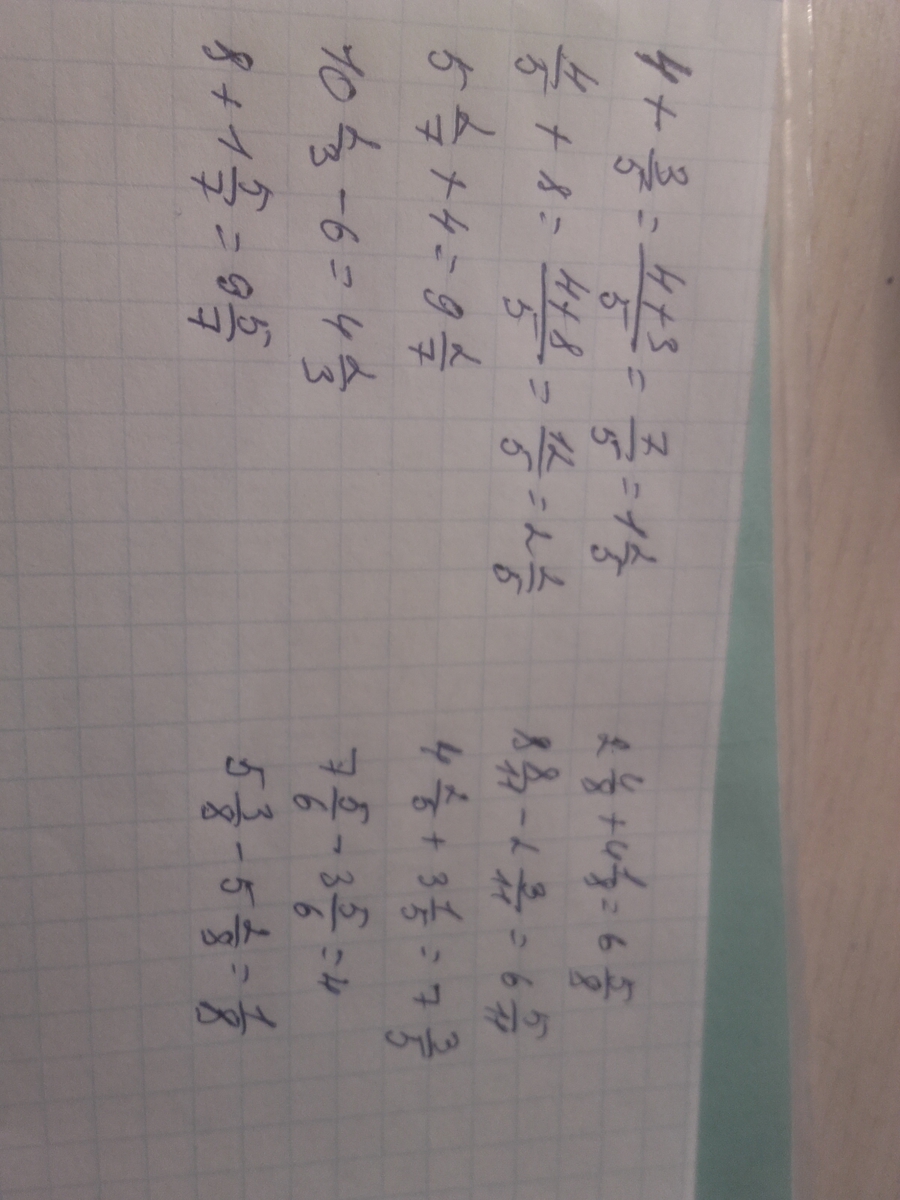 4 + 3/5 = (4+3)/5 = 7/5 = 1 2/5
4/5 + 8 = (4+8)/5 = 12/5 = 2 2/5
5 2/7 + 4 = 9 2/7
10 2/3 - 6 = 4 2/3
8 + 1 5/7 = 9 5/7
2 4/8 + 4 1/8 = 6 5/8
8 8/11 - 2 3/11 = 6 5/11
4 2/5 + 3 1/5 = 7 3/5
7 5/6 - 3 5/6 = 4
5 3/8 - 5 2/8 = 1/8